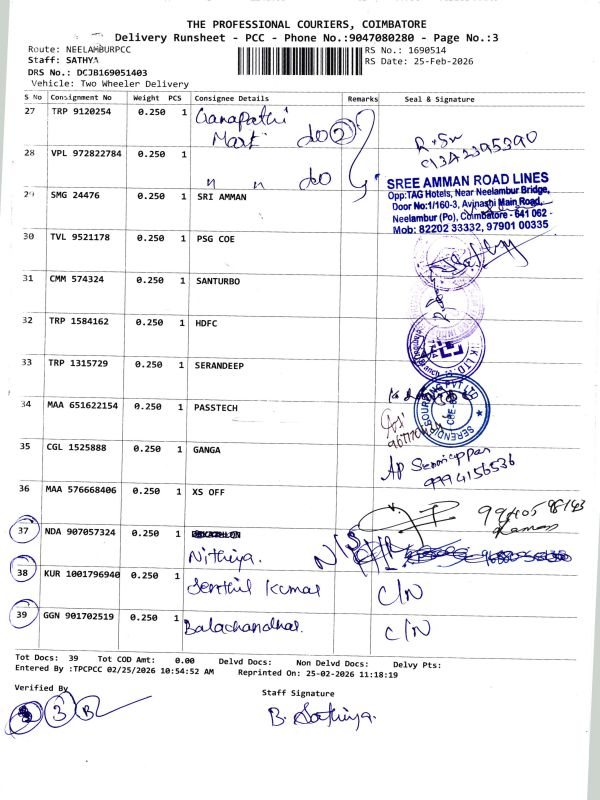 THE PROFESSIONAL COURIERS, COIMBATORE
Delivery Runsheet - PCC - Phone No.:9047080280 - Page No.:3
Route: NEELAMBURPCC
RS No.: 1690514
Staff: SATHYA
RS Date: 25-Feb-2026
DRS No.: DCJB169051403
Vehicle: Two Wheeler Delivery
S No Consignment No Weight PCS Consignee Details Remarks Seal & Signature
27 TRP 9120254 0.250 1 Ganapathi
Mart do 2
28 VPL 972822784 0.250 1
〃 〃 do
SREE AMMAN ROAD LINES
Opp:TAG Hotels, Near Neelambur Bridge,
Door No:1/160-3, Avinashi Main Road,
Neelambur (Po), Coimbatore - 641 062
Mob: 82202 33332, 97901 00335
29 SMG 24476 0.250 1 SRI AMMAN
30 TVL 9521178 0.250 1 PSG COE
31 CMM 574324 0.250 1 SANTURBO
32 TRP 1584162 0.250 1 HDFC
33 TRP 1315729 0.250 1 SERANDEEP
34 MAA 651622154 0.250 1 PASSTECH
35 CGL 1525888 0.250 1 GANGA
9994156536
36 MAA 576668406 0.250 1 XS OFF
37 NDA 907057324 0.250 1
Nithiya.
38 KUR 1001796940 0.250 1 Senthil Kumar C/N
39 GGN 901702519 0.250 1 Balachandhar. C/N
Tot Docs: 39 Tot COD Amt: 0.00 Delvd Docs: Non Delvd Docs: Delvy Pts:
Entered By :TPCPCC 02/25/2026 10:54:52 AM Reprinted On: 25-02-2026 11:18:19
Verified By
Staff Signature
3 B
B. Sathiya.